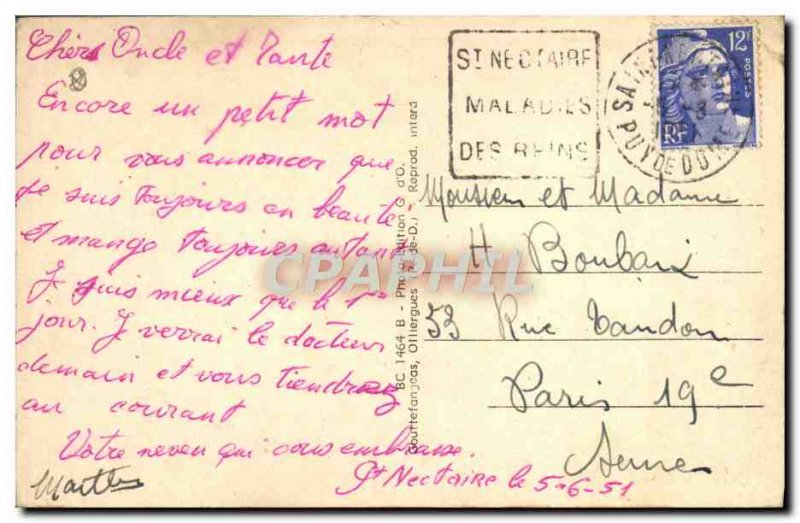 Chers Oncle et Tante
Encore un petit mot
pour vous annoncer que
je suis toujours en beauté
et mange toujours autant
Je suis mieux que le 1er
jour. Je verrai le docteur
demain et vous tiendrez
au courant
Votre neveu qui vous embrasse.
St Nectaire le 5-6-51
BC 1464 B - Photo-Edition G. d'O.
Gouttefangeas, Olliergues (P.-de-D.) Reprod. interd
ST NECTAIRE
MALADIES
DES REINS
PUY DE DOME
12F
POSTES
RF
Monsieur et Madame
H Boubaix
53 Rue Tandou
Paris 19e
Seine
CPAPHIL